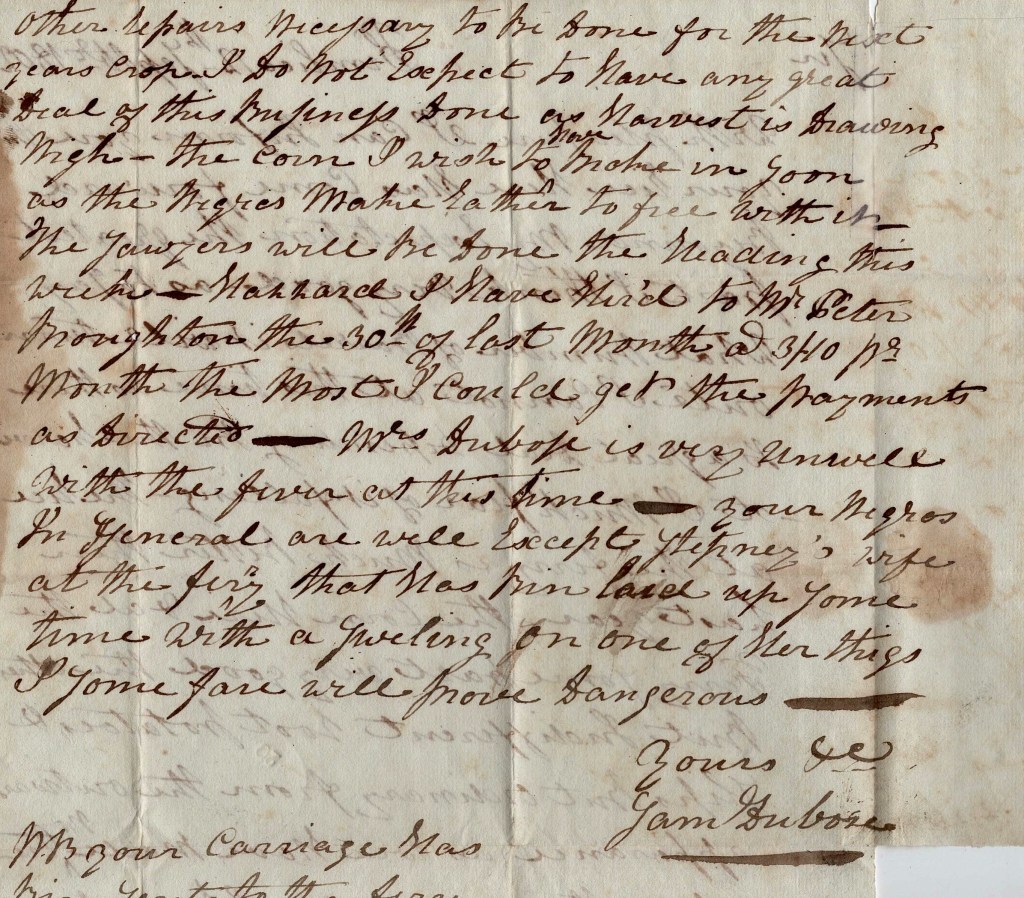 Other repairs Necessary to Be Done for the Next
years Crop. I Do Not Expect to Have any great
Deal of this Business Done as Harvest is Drawing
Nigh – the Corn I wish to have Broke in Soon
as the Negros Make Rather to free with it –
The Sawyers will Be Done the Heading this
week – I Have Hir'd to Mr. Peter
Broughton the 30th of last Month @ 3/10 pr
Month the Most I Could get the payments
as Directed — Mrs Dubose is very unwell
with the fever at this time — your Negros
In General are well Except Stepney's wife
at the fery that Has Bin laid up Some
time with a Sweling on one of Her thigs
I Some fare will prove Dangerous —
Yours &c
Sam Dubose
NB your Carriage Has
Bin Sent to the fery